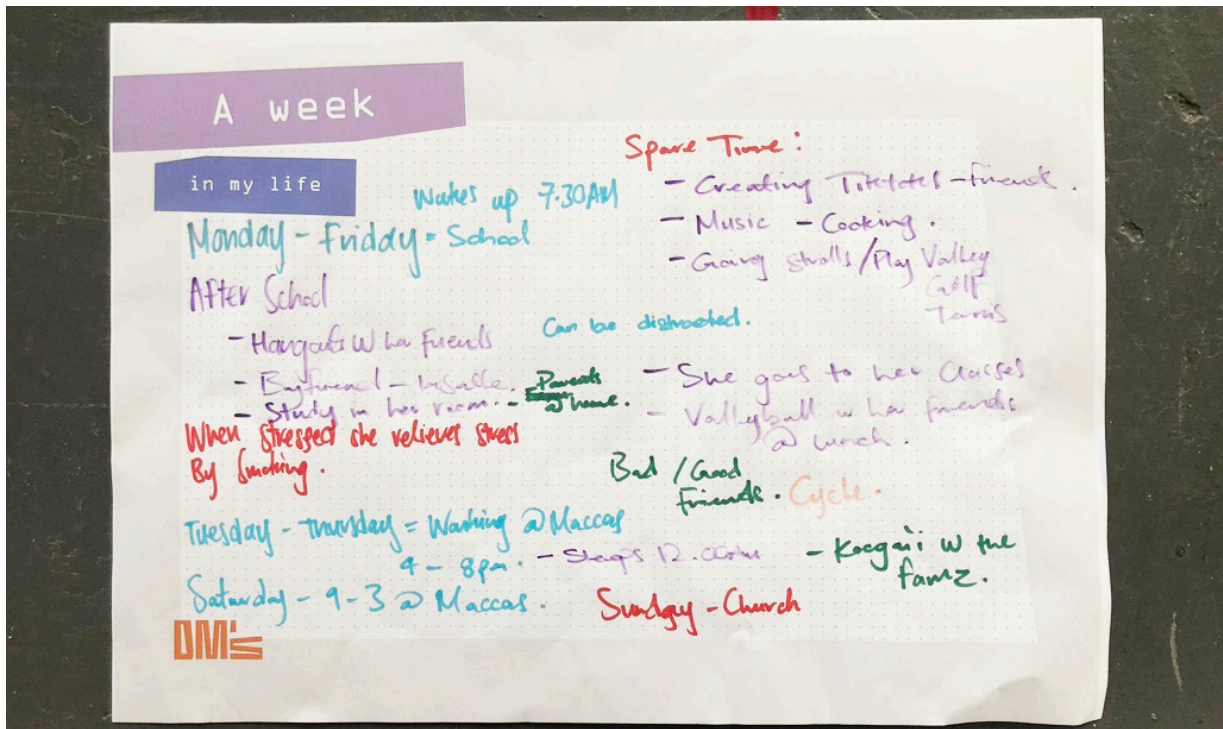 A week
in my life
Wakes up 7.30AM
Monday - Friday = School
After School
- Hangouts W her friends
- Boyfriend -
- Study in her room. - Parents
@ home.
When stressed she relieves stress
By Smoking.
Tuesday - Thursday = Working @ Maccas
4 - 8pm. - Sleeps 12.00am
Saturday - 9-3 @ Maccas.
DM's
Spare Time:
- Creating - friends.
- Music - Cooking.
- Going strolls/Play Volley
Golf
Tennis
Can be distracted.
- She goes to her Classes
- Volleyball w her friends
@ lunch.
Bad / Good
friends. Cycle.
- w the
famz.
Sunday - Church